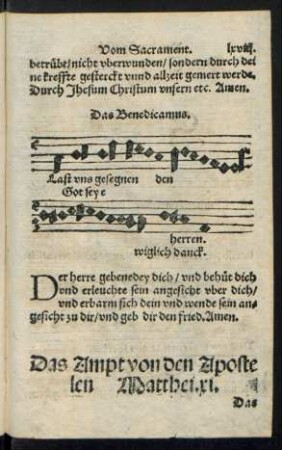 Vom Sacrament. lxviij.
betrübt/nicht vberwunden/sondern durch dei
ne kreffte gesterckt vnnd allzeit gemert werde.
Durch Jhesum Christum vnsern etc. Amen.
Das Benedicamus.
Last vns gesegnen den
Got sey e
herren.
wiglich danck.
Der herre gebenedey dich/ vnd behüt dich
vnd erleuchte sein angesicht vber dich/
vnd erbarm sich dein vnd wende sein an-
gesicht zu dir/vnd geb dir den fried. Amen.
Das Ampt von den Aposte
len Matthei.xi.
Das